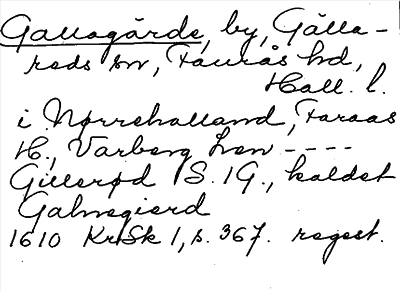 Gallagärde, by, Gälla-
reds sn, Faurås hd,
Hall. l.
i Nørrehalland, Faraas
H., Varberg Len ----
Gillerød S. IG., kaldet
Galmegierd
1610 KrSk I, s. 367. regest.